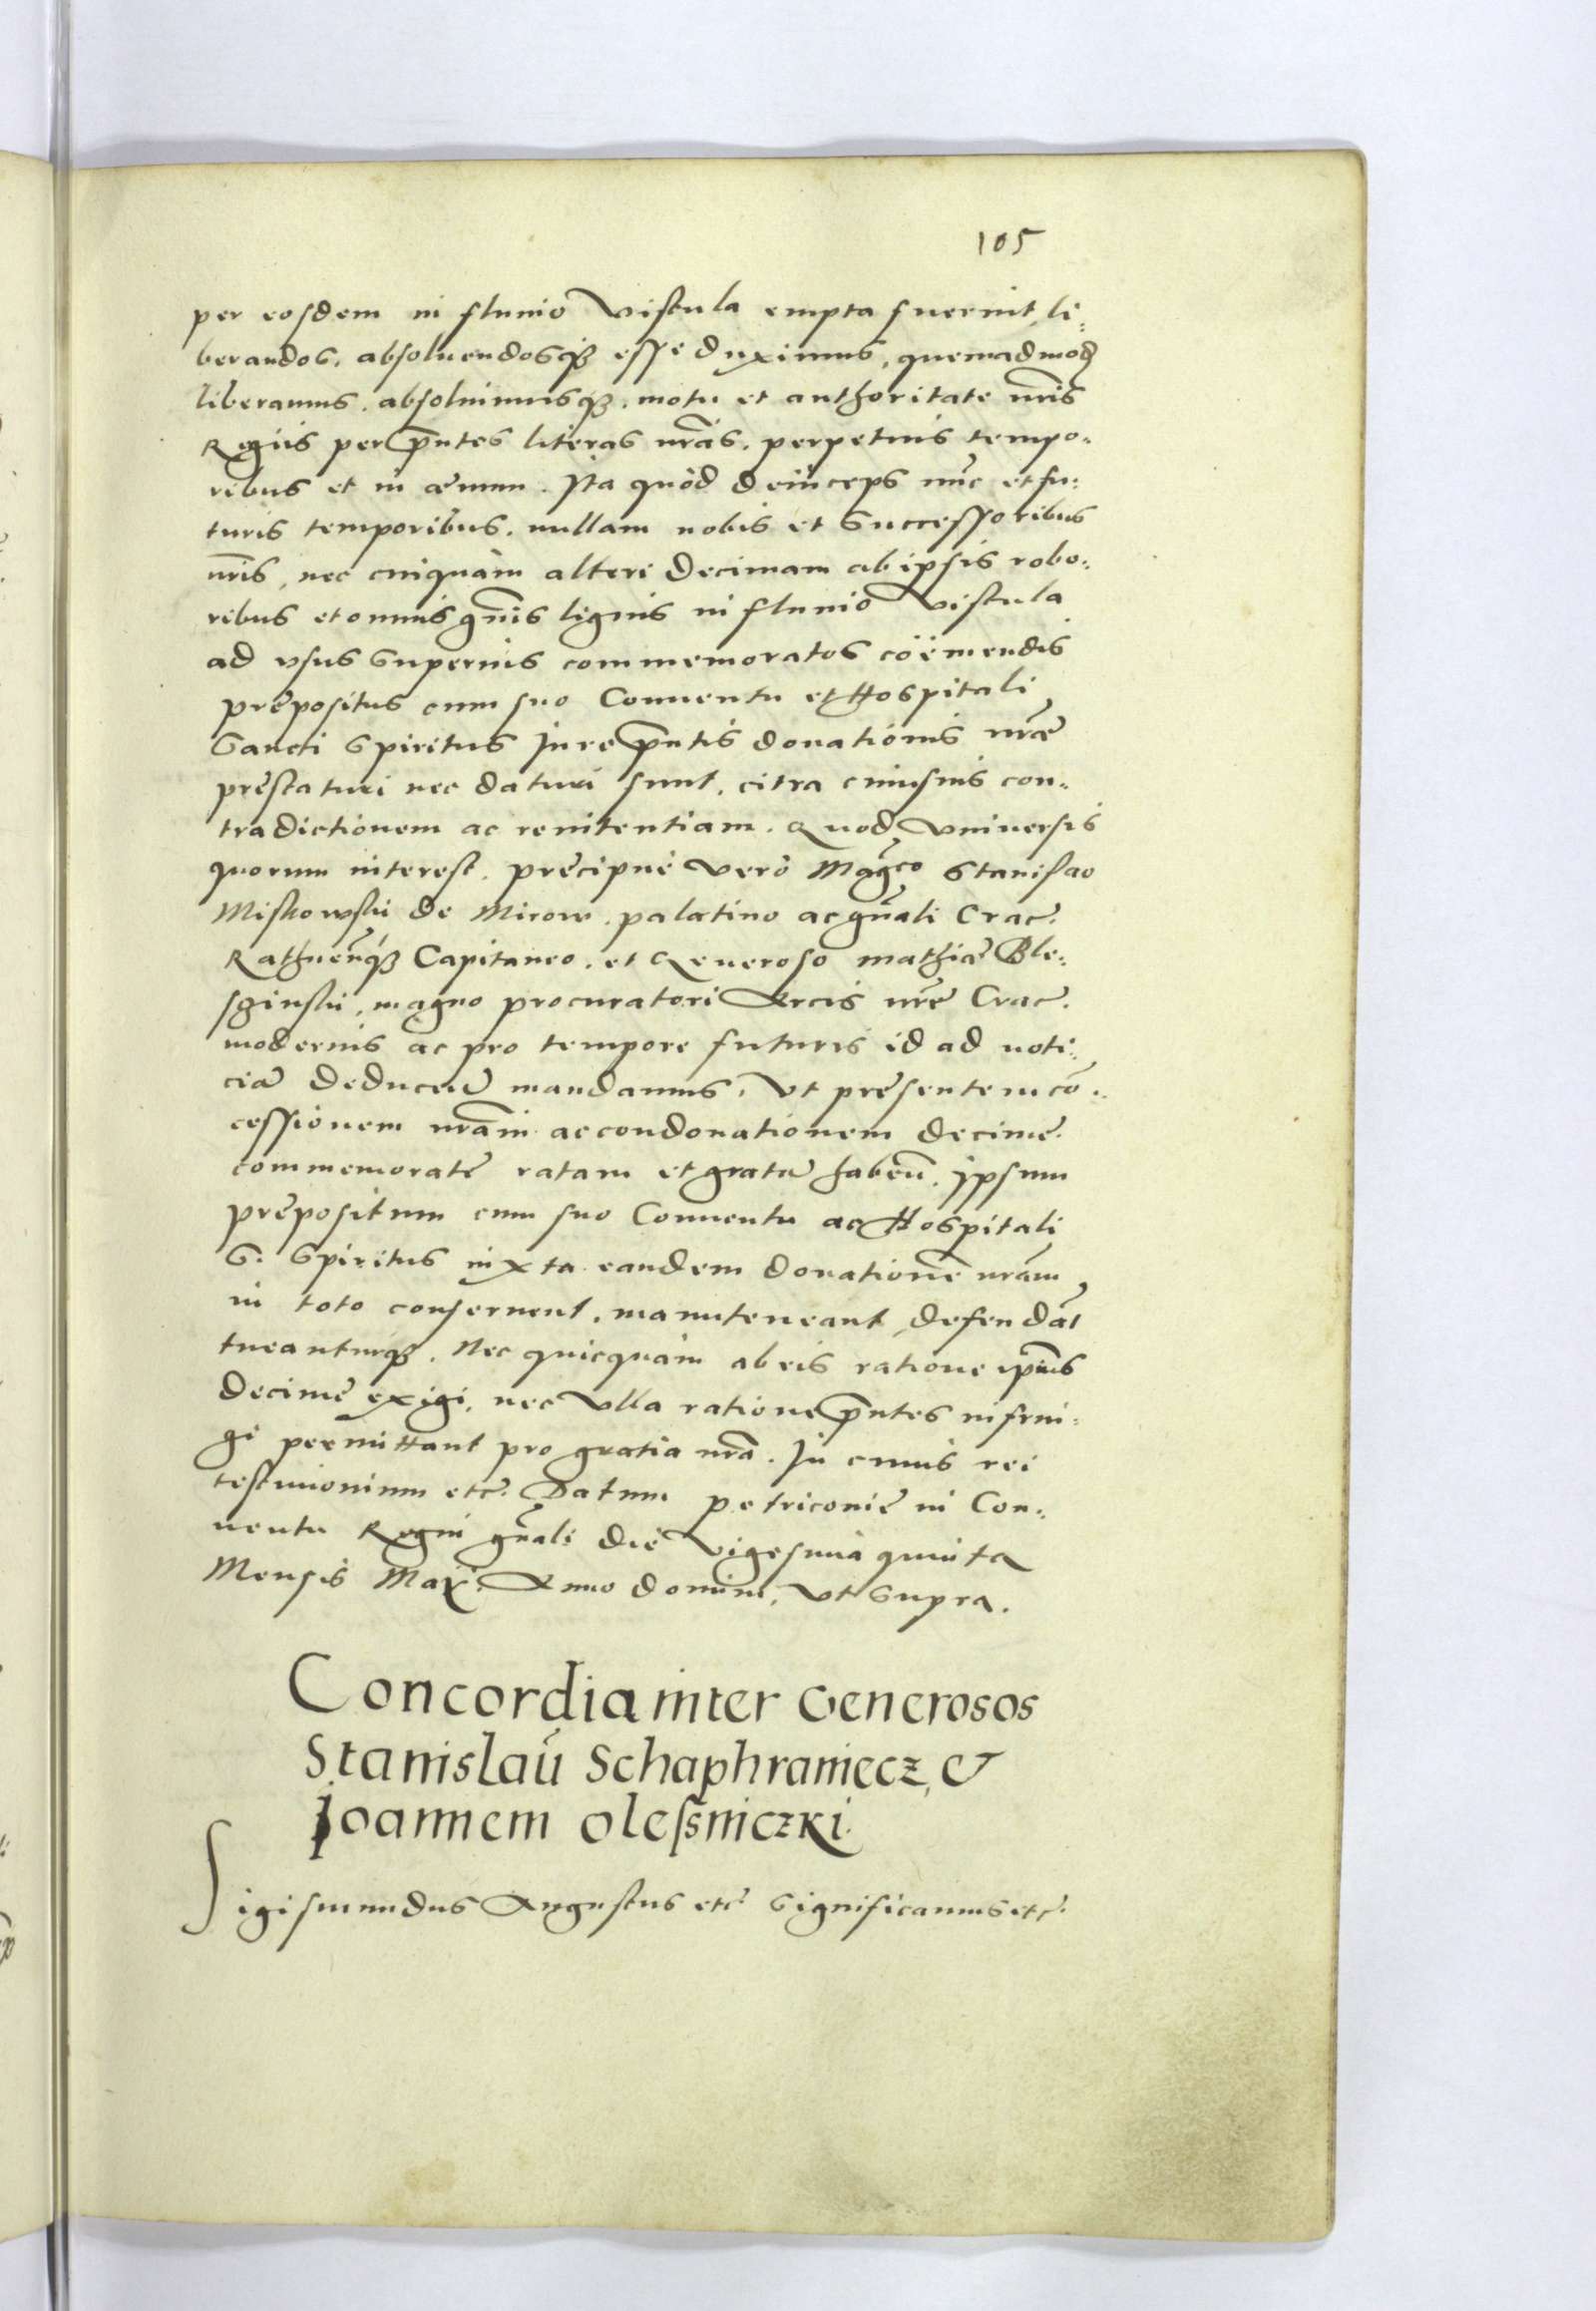 105
per eosdem in fluuio Vistula empta fuerint, li:
berandos, absoluendosq₃ esse duximus, quemadmod
liberamus, absoluimusq₃, motu et authoritate nr̃is
Regiis per p̃ntes literas nr̃as, perpetuis tempo:
ribus et in æuum. Ita quòd deinceps nũc et fu:
turis temporibus, nullam nobis et Successoribus
nr̃is, nec cuiquàm alteri decimam ab ipsis robo:
ribus et omnis gñis lignis in fluuio Vistula
ad vsus Superius commemoratos coëmendis
prępositus cum suo Conuentu et Hospitali
Sancti Spiritus Jure p̃ntis donationis nr̃æ
pręstaturi nec daturi sunt, citra cuiusuis con:
tradictionem ac renitentiam. Quod Vniuersis
quorum interest, pręcipuè Verò Mag̃co Stanislao
Miskowski de Mirow, palatino ac gñali Crac̃.
Rathneñq₃ Capitaneo, et Generoso Mathiæ Ble:
sginski, magno procuratori Arcis nr̃ę Crac̃.
modernis ac pro tempore futuris id ad noti:
ciã deducen̄ mandamus, Vt pręsentem cõ:
cessionem nr̃am ac condonationem decimę
commemoratę ratam et gratã haben̄, Ipsum
prępositum cum suo Conuentu ac Hospitali
S. Spiritus iuxta eandem donationẽ nr̃am
in toto conseruent, manuteneant, defendãt
tueanturq₃, Nec quicquàm ab eis ratione ip̃ius
decimę exigi, nec Vlla ratione p̃ntes infrin:
gi permittant pro gratia nr̃a. In cuius rei
testimonium etc̃. Datum petriconię in Con:
uentu Regni gñali die Vigesima quinta
Mensis Maÿ. Anno domini, Vt Supra.
Concordia inter Generosos
Stanislaũ Schaphraniecz, &
Ioannem Olesśniczki.
Sigismundus Augustus etc̃ Significamus etc̃.